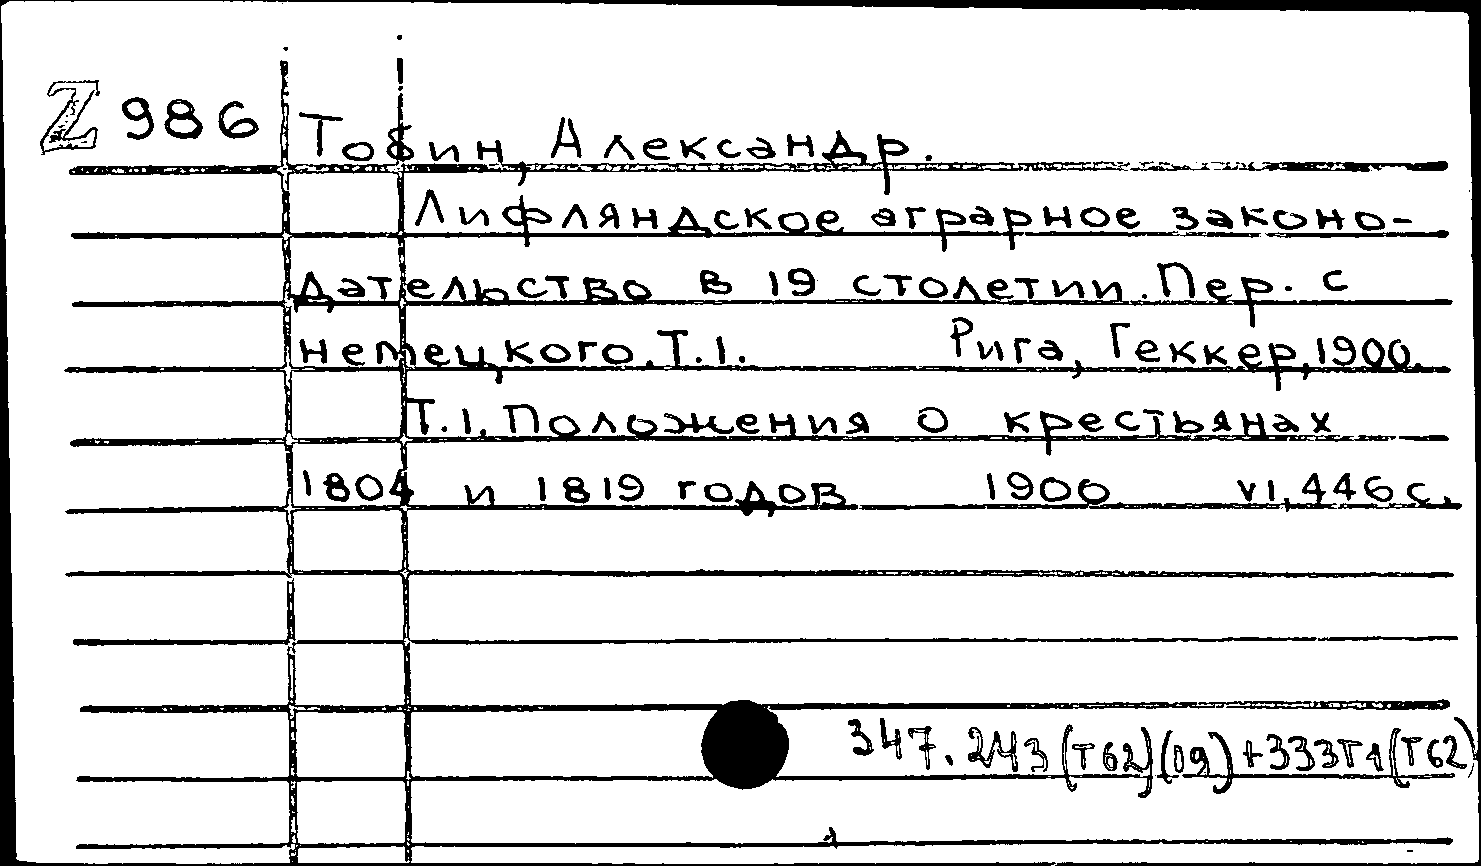 Z 986
Тобин, Александр.
Лифляндское аграрное законо-
дательство в 19 столетии. Пер. с
немецкого. Т.1. Рига, Геккер, 1900.
Т.1. Положения о крестьянах
1804 и 1819 годов 1900 VI, 446 с.
347.243(Т62)(09)+333Т1(Т62)
1